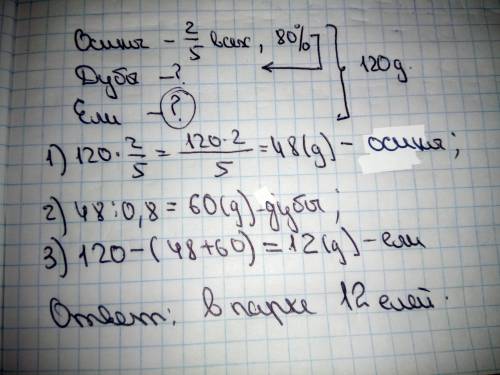 Осины - 2/5 всех, 80%
Дубы - ?
Ели - ?
120 д.
1) 120 · 2/5 = 120·2/5 = 48 (д) - осины;
2) 48 : 0,8 = 60 (д) - дубы;
3) 120 - (48 + 60) = 12 (д) - ели
Ответ: в парке 12 елей.